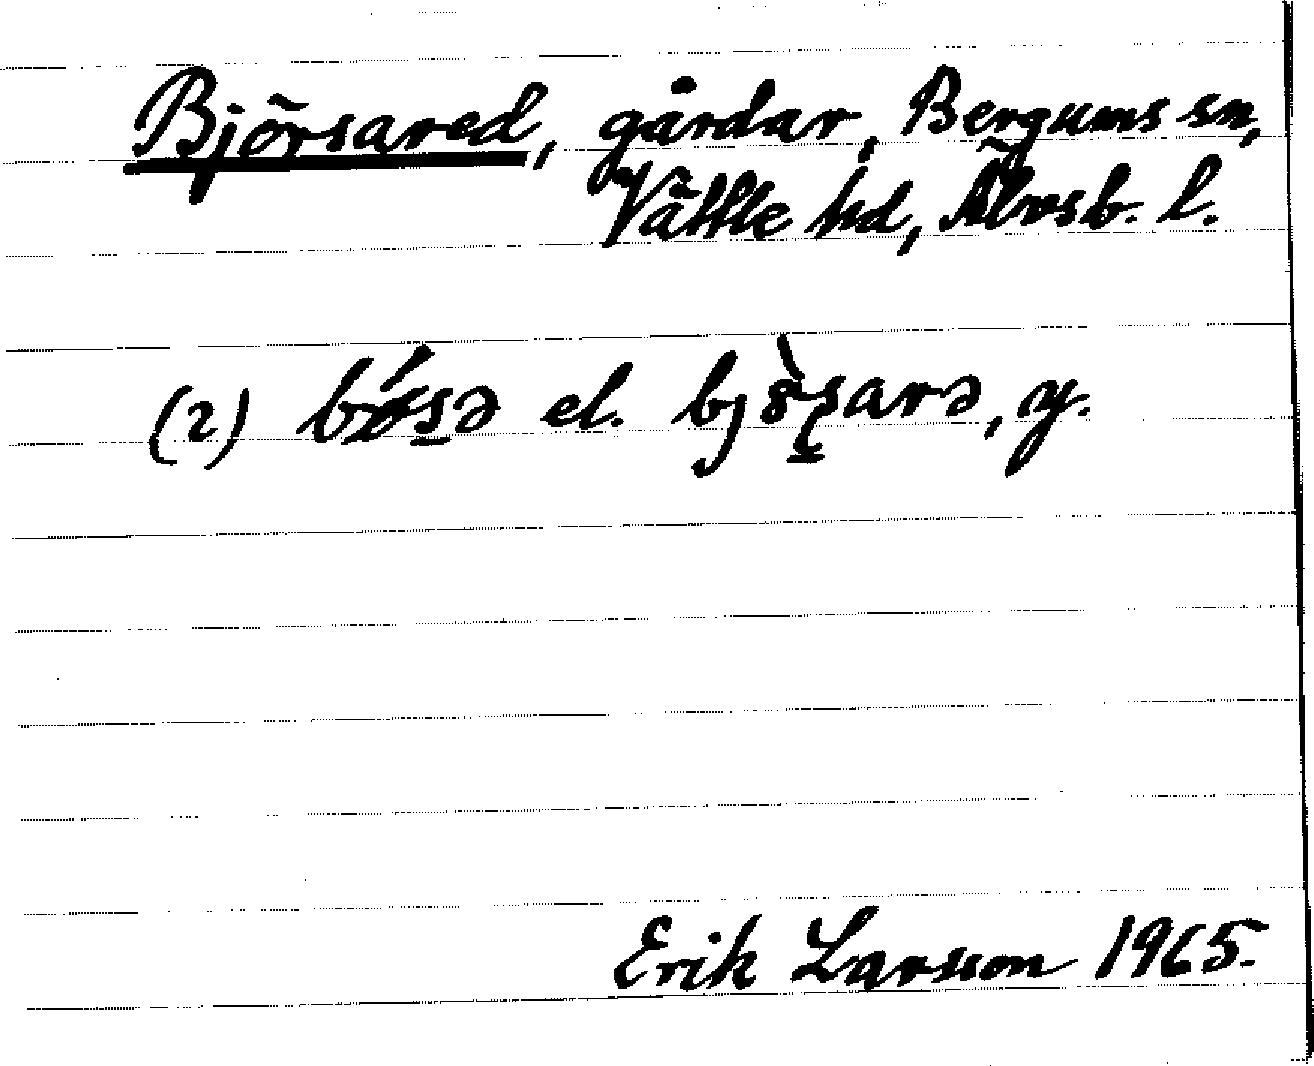 Björsared, gårdar, Bergums sn,
Vättle hd, Älvsb. l.
(2) bǿs̠ə el. bjö̀s̠arə, y.
Erik Larsson 1965.